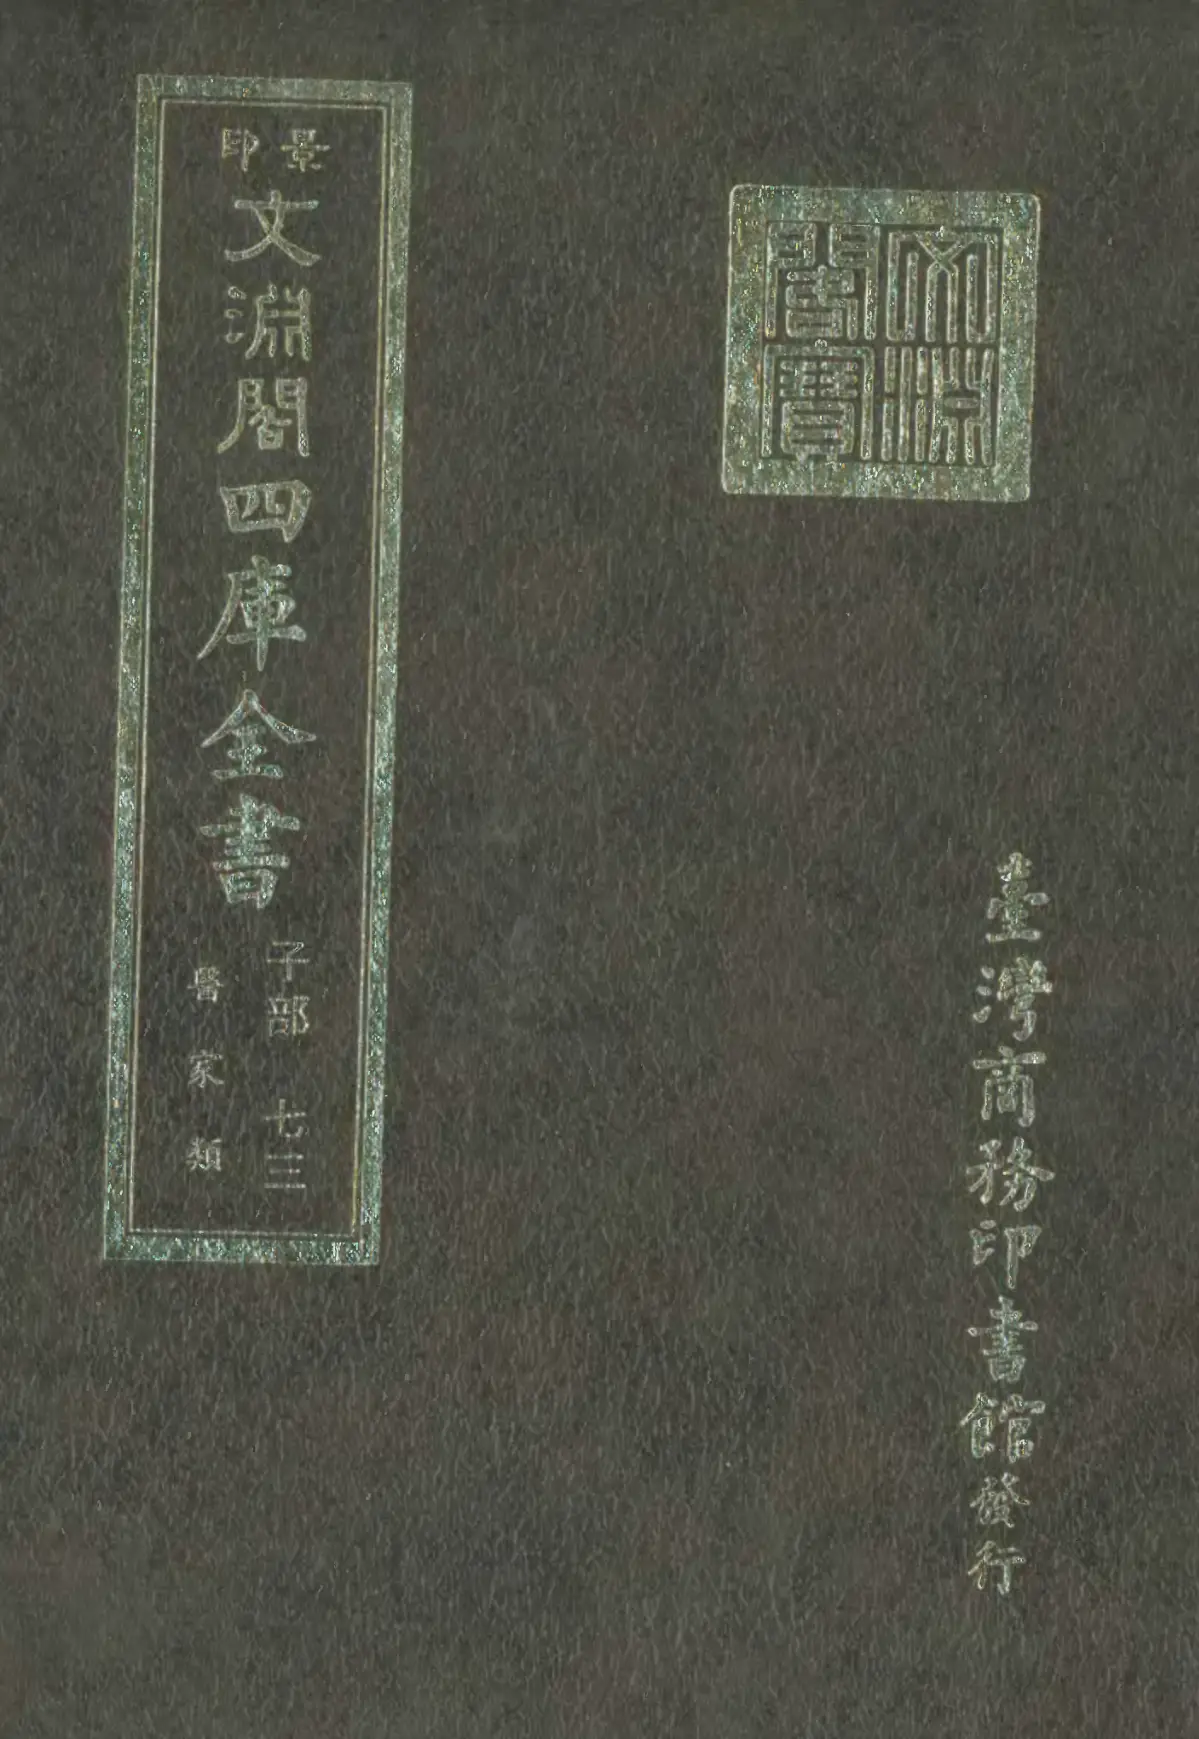 景印
文淵閣四庫全書
子部 七三
醫家類
文淵閣寶
臺灣商務印書館發行